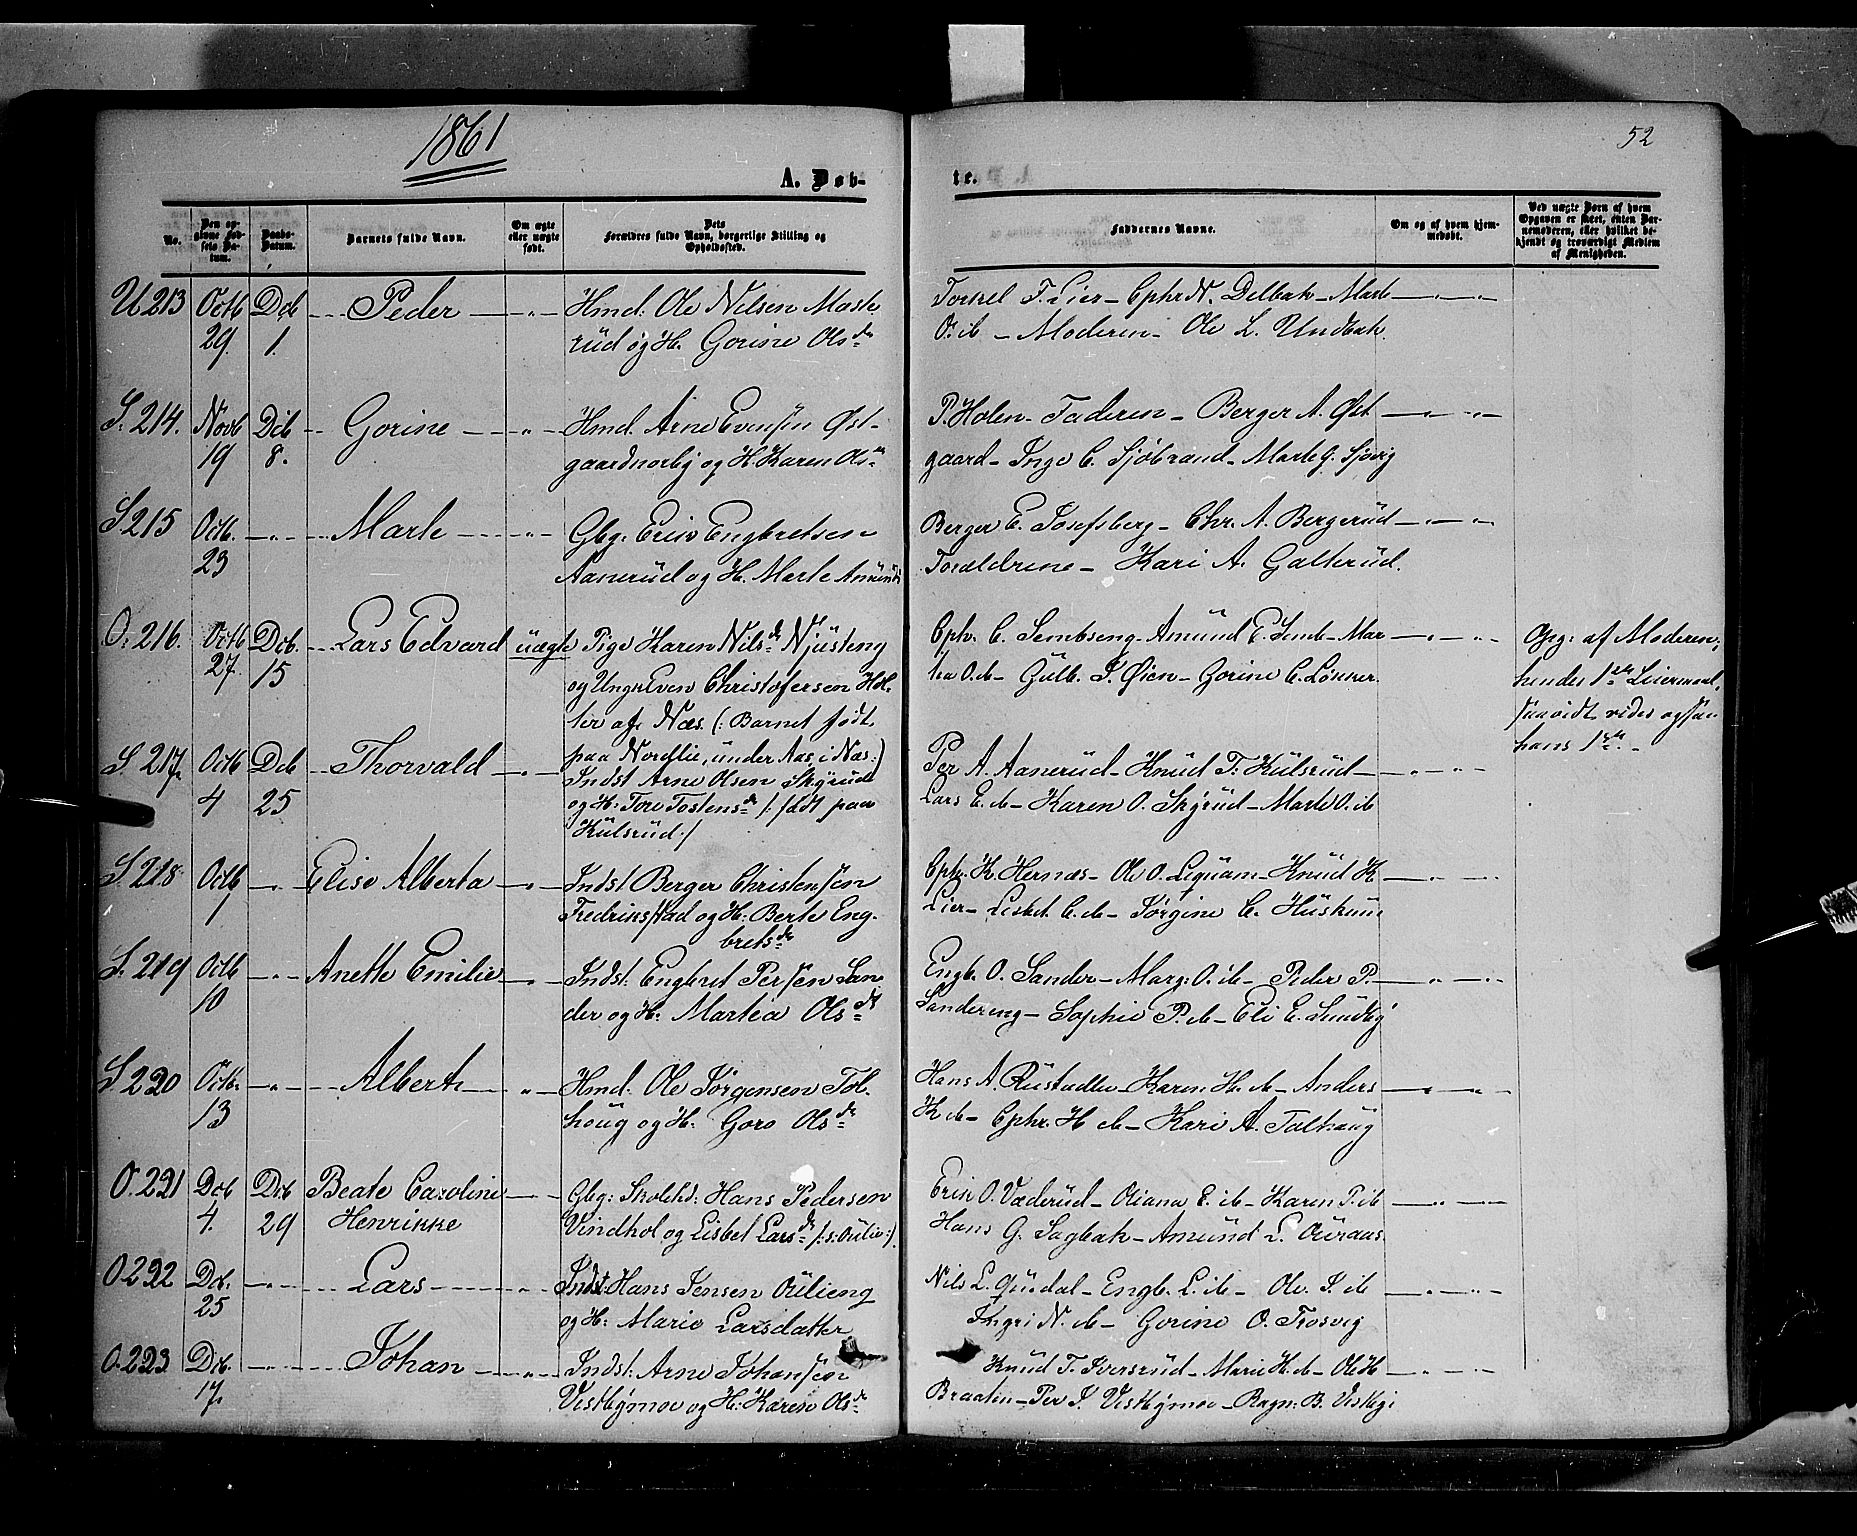 1861
52
A. Døb-
te.
No.
Den opgivne Fødsels Datum.
Daabs-Datum.
Barnets fulde Navn.
Om ægte eller uægte født.
Dets Forældres fulde Navn, borgerlige Stilling og Opholdssted.
Faddernes Navne.
Om og af hvem hjemmedøbt.
Ved uægte Børn af hvem Opgaven er skeet, enten Barnemoderen, eller hvilket bekjendt og troværdigt Medlem af Menigheden.
U 213 Octb Dcb Peder Hmd. Ole Nilsen Mosk
29. 1. rud og H. Gorine Olsdr
Torkel T. Lier - Cphr N. Delbak - Marte
O. ib - Moderen - Ole L. Undbak
S. 214. Novb Dcb Gorine Hmd. Arne Evensen Øst-
19 8. gaardnorby og H. Karen Ols
P. Holen - Faderen - Berger A. Øst
gaard - Inge C. Sjøbrand - Marte G. Sjøvig
S 215 Octb. Marte Gbg. Eric Engbretsen
23 Aanerud og H. Marte Amunds
Berger E. Josefsberg - Chr. A. Bergerud
Forældrene - Kari A. Galterud.
O. 216. Octb Dcb. Lars Edvard uægte Pige Karen Nilsdr Njusteng
27. 15 og Ungkr Even Christofersen Hol-
ter af Næs. (: Barnet født
paa Nordlie, under Aas, i Næs:)
Cphr. C. Sembseng - Amund E. Semb - Mar
tea O. ib - Gulb. J. Øien - Gorine C. Løkker.
Opg: af Moderen;
hendes 1ste Leiermaal,
saavidt vides ogsaa
hans 1ste. -
S 217 Octb Dcb Thorvald Indst Arne Olsen Skjrud
4 25 og H: Tore Tostensdr /: født paa
Kulsrud :/
Per A. Aanerud - Knud T. Kulsrud -
Lars E. ib - Karen O. Skjrud - Marte O. ib
S. 218. Octb Elise Alberta Indst Berger Christensen
1 Fredrikstad og H: Berte Eng-
bretsdr
Cphr. H. Hernæs - Ole O. Liquam - Knud K
Lier - Lisbet C. ib - Jørgine C.
S. 219 Octb Anette Emilie Indst: Engbret Persen San
10 der og H: Martea Olsdr
Engb. O. Sander - Marg: O. ib - Peder P.
Sandereng - Sophie P. ib - Eli E. Lundby
S 220 Octb. Albert Hmd. Ole Jørgensen Tol-
13 houg og H. Goro Olsdr
Hans A. Rustadlie - Karen H. ib - Anders
K ib - Cphr. H ib - Kari A. Tolhaug
O. 221 Dcb Dcb Beate Caroline Gbg: Skolehd: Hans Pedersen
4. 29 Henrikke Vindhol og Lisbet Larsdr /: s: Oulie :/.
Erik O. Væderud - Oliana E. ib - Karen P. ib
Hans G. Sagbak - Amund L. Ouraas
O 222 Dcb. Lars Indst: Hans Jensen Oulieng
25 og H: Marie Larsdatter
Nils L. Guudal - Engb. L. ib - Ole J. ib
Ingri N. ib - Gorine O. Trosvig
O. 223 Dcb. Johan Indst: Arne Johansen
17. Vestbymoe og H: Karen Olsdr
Knud T. Iversrud - Marie H. ib - Ole H.
Braaten - Per J. Vestbymoe - Ragn: B. Vestbyi